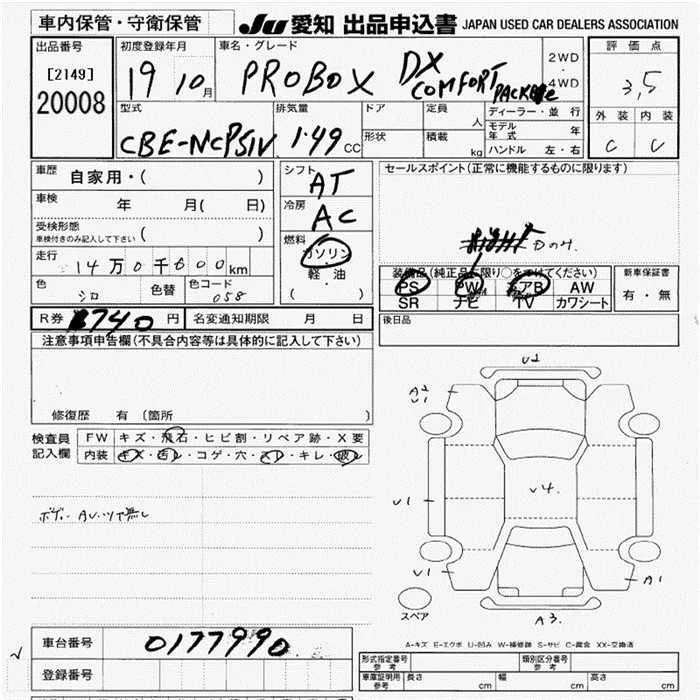 車内保管・守衛保管
JU 愛知 出品申込書 JAPAN USED CAR DEALERS ASSOCIATION
出品番号
[2149]
20008
初度登録年月
19 10 月
車名・グレード
PROBOX DX
COMFORT
PACKAGE
2WD
・
4WD
評価点
3,5
外装 内装
C C
型式
CBE-NCP51V
排気量
1.49 CC
ドア
形状
定員
人
積載
kg
ディーラー・並行
モデル年式 年
ハンドル 左・右
車歴 自家用・( )
車検 年 月( 日)
受検形態
車検付きのみ記入して下さい ( )
走行 14万0千600km
色 シロ 色替 色コード 058
シフト AT
冷房 AC
燃料
ガソリン
・
軽油
( )
セールスポイント(正常に機能するものに限ります)
Dのみ.
装備品(純正品に限り○をつけてください)
PS PW エアB AW
SR ナビ TV カワシート
新車保証書
有・無
R券 740 円 名変通知期限 月 日
後日品
注意事項申告欄(不具合内容等は具体的に記入して下さい)
修復歴 有 〔箇所 〕
検査員
記入欄
FW キズ・飛石・ヒビ割・リペア跡・X要
内装 キズ・汚レ・コゲ・穴・スレ・キレ・破レ
U2
A2
U1
U1
V4.
U1
A1
A3.
スペア
A-キズ E-エクボ U-凹み W-補修跡 S-サビ C-腐食 XX-交換済
車台番号 0177990
登録番号
形式指定番号
参考
類別区分番号
参考
車庫証明用
参考
長さ cm 幅 cm 高さ cm